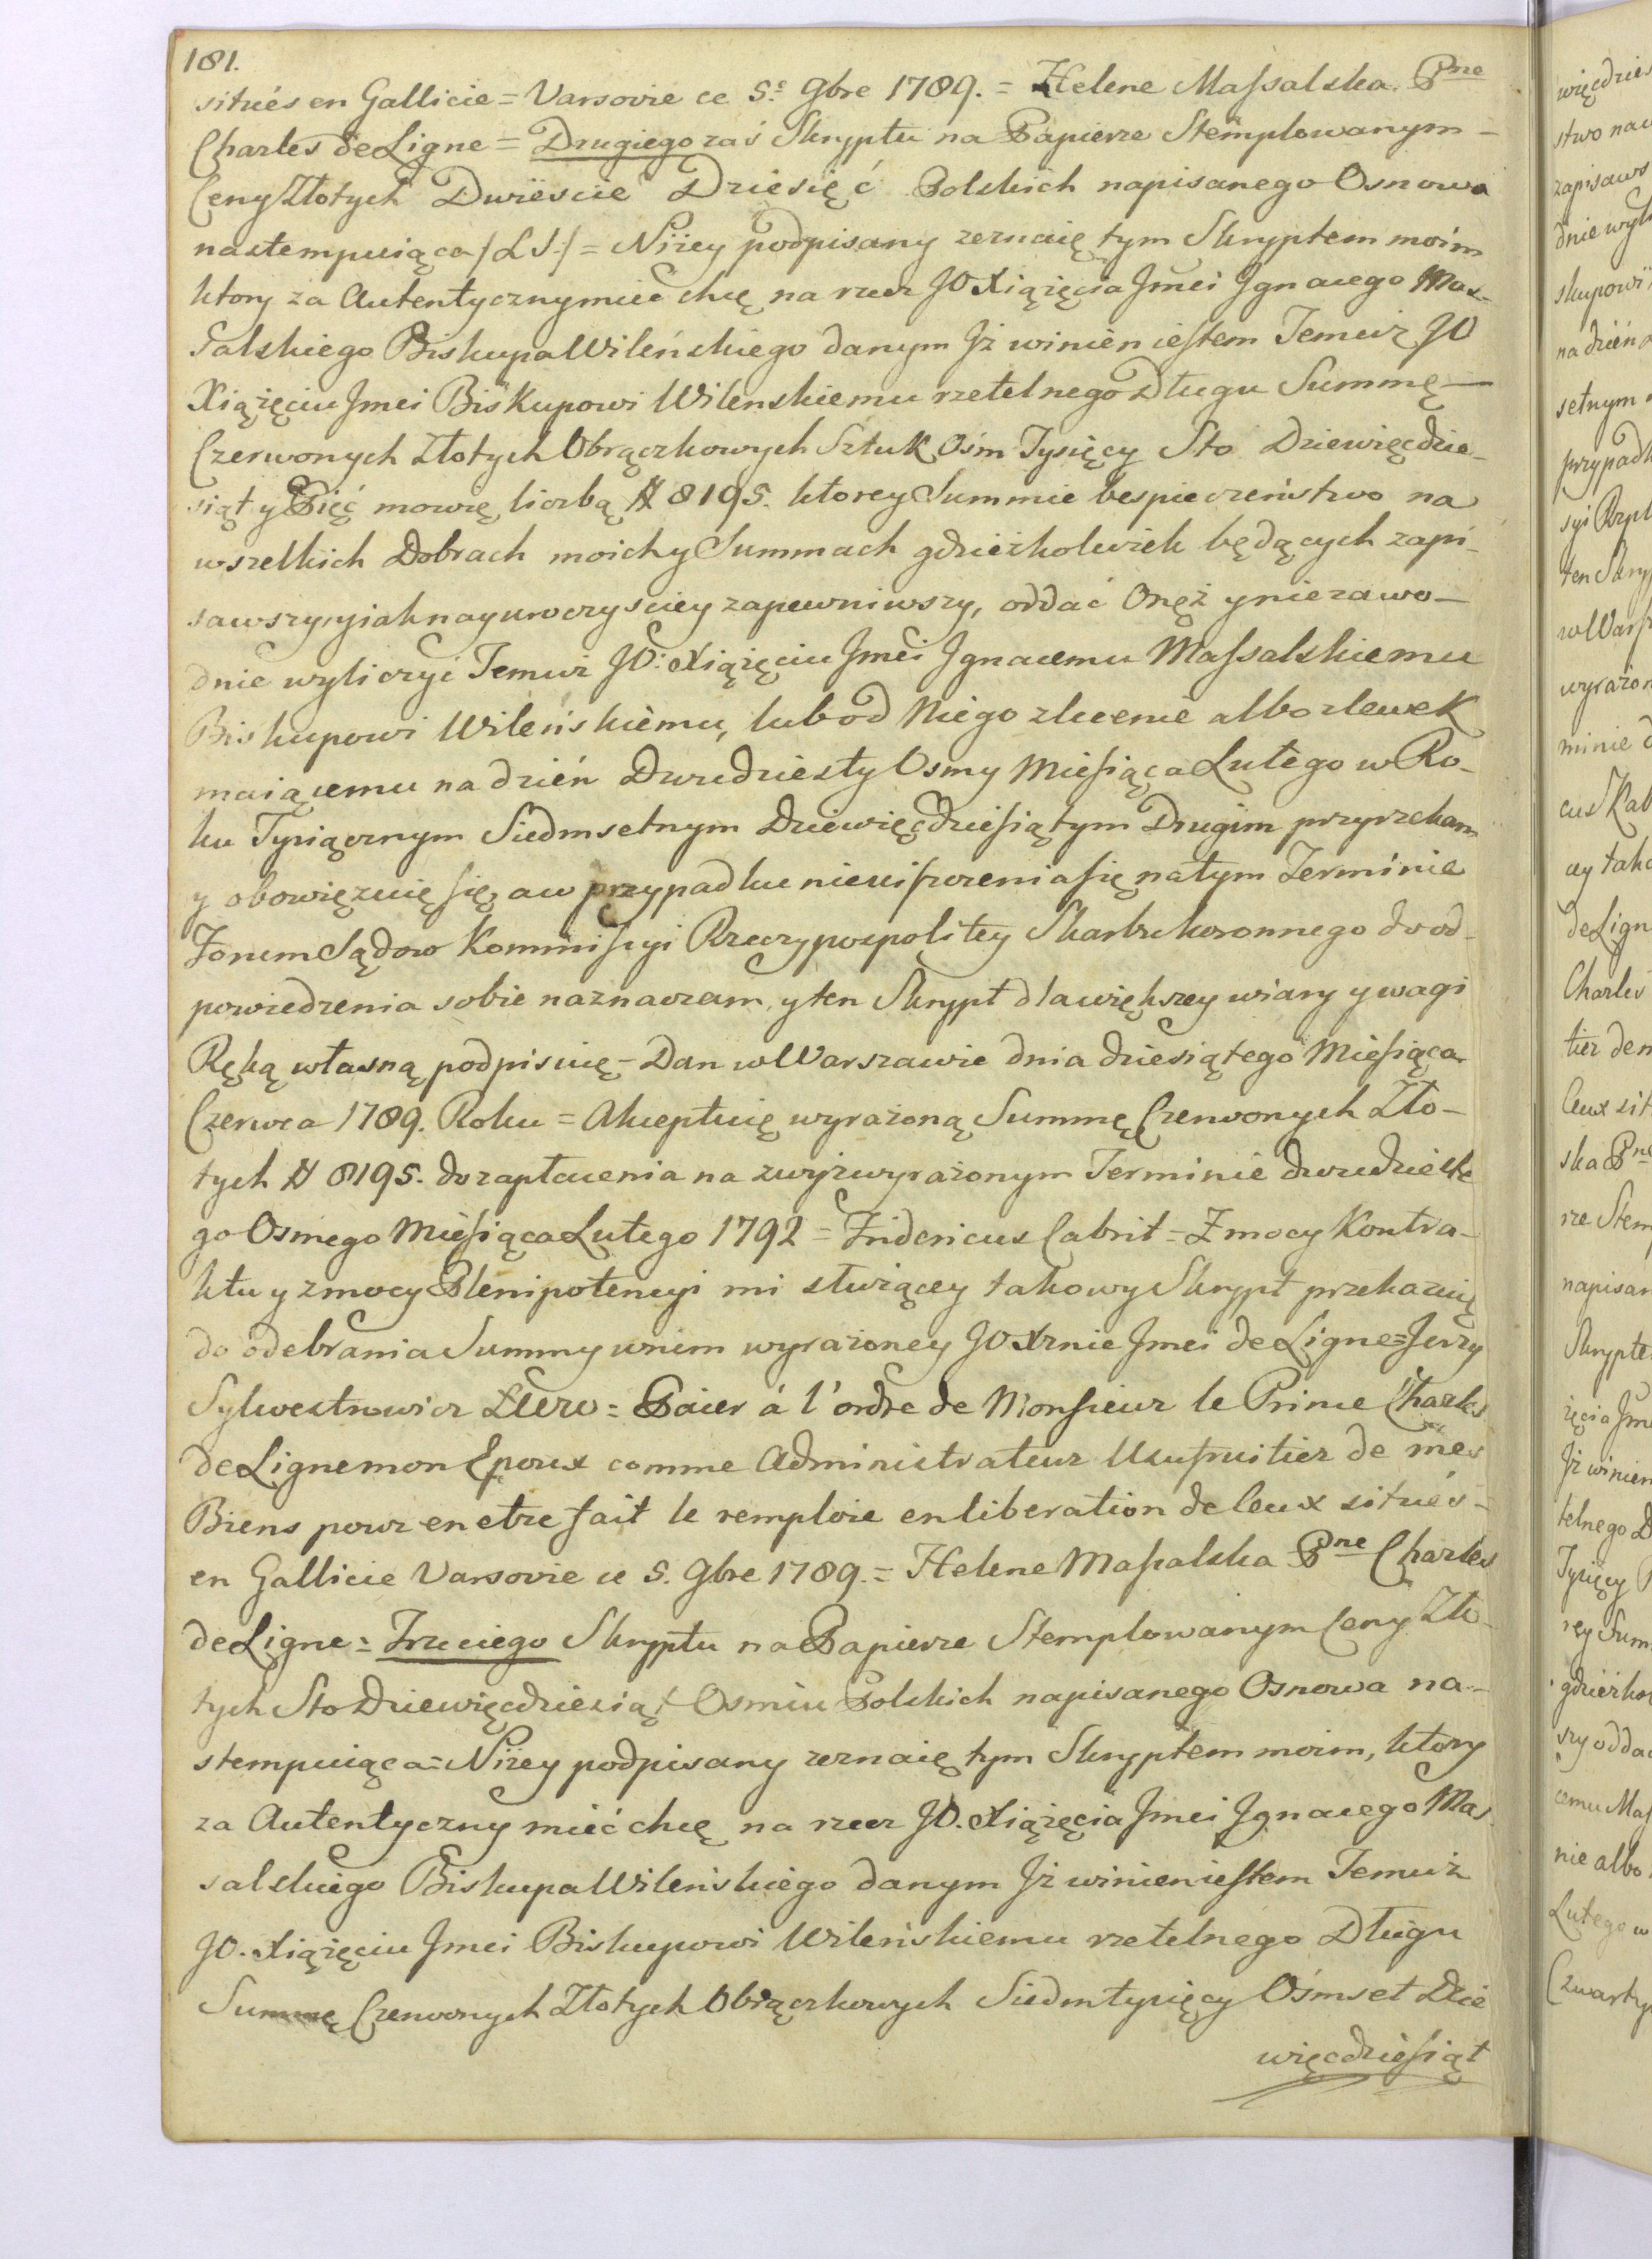 181.
situés en Gallicie = Varsovie ce 5.e 9bre 1789. = Helene Maſsalska. Pne
Charles de Ligne = Drugiego zaś Skryptu na Papierze Stemplowanym –
Ceny Złotych Dwieście Dziesięć Polskich napisanego Osnowa
nastempuiąca /LS./ = Niżey podpisany zeznaię tym Skryptem moim
ktory za Autentyczny mieć chcę na rzecz JO Xiążęcia Jmci Jgnacego Mas-
salskiego Biskupa Wileńskiego danym Jż winien ieſtem Temuż JO
Xiążęciu Jmci Biskupowi Wilenskiemu rzetelnego Długu Summę –
Czerwonych Złotych Obrączkowych Sztuk Ośm Tysięcy Sto Dziewięcdzie-
siąt y Pięć mowię liczbą # 8195. ktorey Summie bespieczeństwo na
wszelkich Dobrach moich y Summach gdzieżkolwiek będących zapi-
sawszy, y iak nayuroczyściey zapewniwszy, oddać Onęż y niezawo-
dnie wyliczyć Temuż JO: Xiążęciu Jmci Jgnacemu Maſsalskiemu
Biskupowi Wileńskiemu, lub od Niego zlecenie albo zlewek
maiącemu na dzień Dwudziesty Osmy Mieſiąca Lutego w Ro-
ku Tysiącznym Siedmsetnym Dziewięcdzieſiątym Drugim przyrzekam
y obowięzuię się, a w przypadku nieuiſzczenia się na tym Terminie
Forum Sądow Kommiſsyi Rzeczypospolitey Skarbu koronnego do od-
powiedzenia sobie naznaczam, y ten Skrypt dla większey wiary y wagi
Ręką własną podpisuię – Dan w Warszawie dnia dziesiątego Mieſiąca
Czerwca 1789. Roku = Akceptuię wyrażoną Summę Czerwonych Zło-
tych # 8195. do zapłacenia na zwyżwyrażonym Terminie dwudzieste
go Osmego Mieſiąca Lutego 1792 = Fridericus Cabrit = Z mocy Kontra-
ktu y z mocy Plenipotencyi mi słuzącey takowy Skrypt przekazuię
do odebrania Summy w nim wyrażoney JO Xznie Jmci de Ligne = Jerzy
Sylwestrowicz = Paier á l'ordre de Monſieur le Prince Charles
de Ligne mon Epoux comme Administrateur Usufruitier de mes
Biens pour en etre fait le remploie en liberation de ceux situés –
en Gallicie Varsovie ce 5. 9bre 1789. = Helene Maſsalska Pne Charles
de Ligne = Trzeciego Skryptu na Papierze Stemplowanym Ceny Zło-
tych Sto Dziewięcdziesiąt Osmiu Polskich napisanego Osnowa na-
stempuiąca = Niżey podpisany zeznaię tym Skryptem moim, ktory
za Autentyczny mieć chcę na rzecz JO. Xiążęcia Jmci Jgnacego Mas
salskiego Biskupa Wileńskiego danym Jż winien ieſtem Temuż
JO. Xiążęciu Jmci Biskupowi Wileńskiemu rzetelnego Długu
Summę Czerwonych Złotych Obrączkowych Siedm tysięcy Ośmset Dzie
więcdzieſiąt